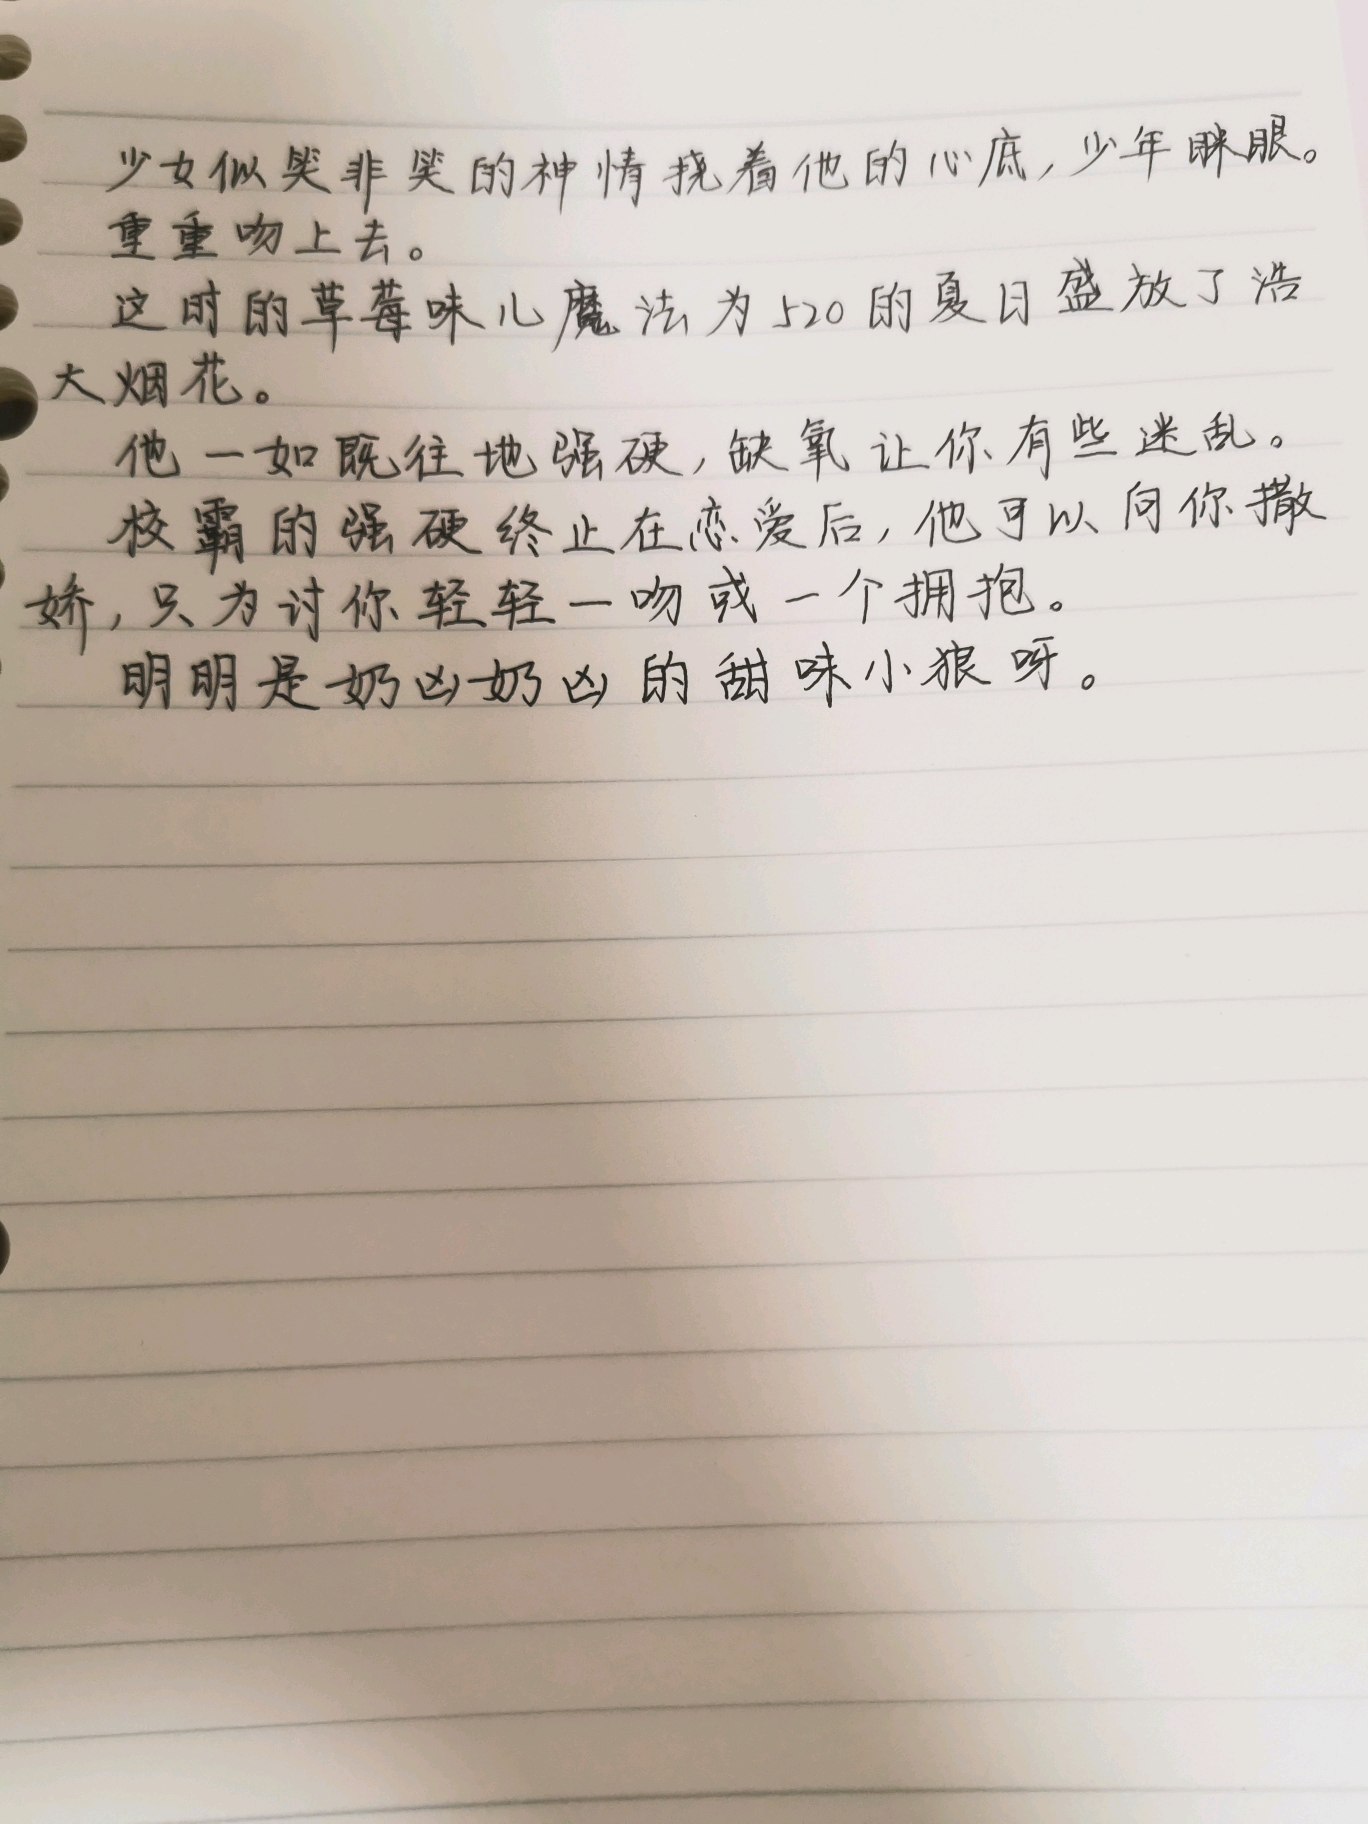 少女似笑非笑的神情挠着他的心底,少年眯眼。
重重吻上去。
这时的草莓味儿魔法为520的夏日盛放了浩
大烟花。
他一如既往地强硬,缺氧让你有些迷乱。
校霸的强硬终止在恋爱后,他可以向你撒
娇,只为讨你轻轻一吻或一个拥抱。
明明是奶凶奶凶的甜味小狼呀。